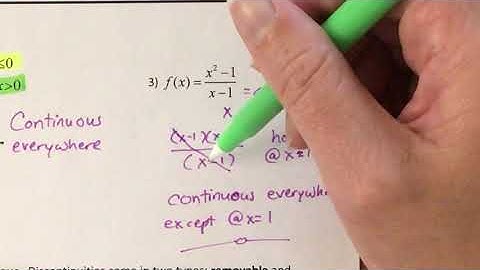 ≤0
x>0
Continuous
everywhere
3) f(x) = x² − 1 / x − 1 =
x
(x-1)(x
(x-1)
@x=1
continuous everywhere
except @x=1
Discontinuities come in two types: removable and